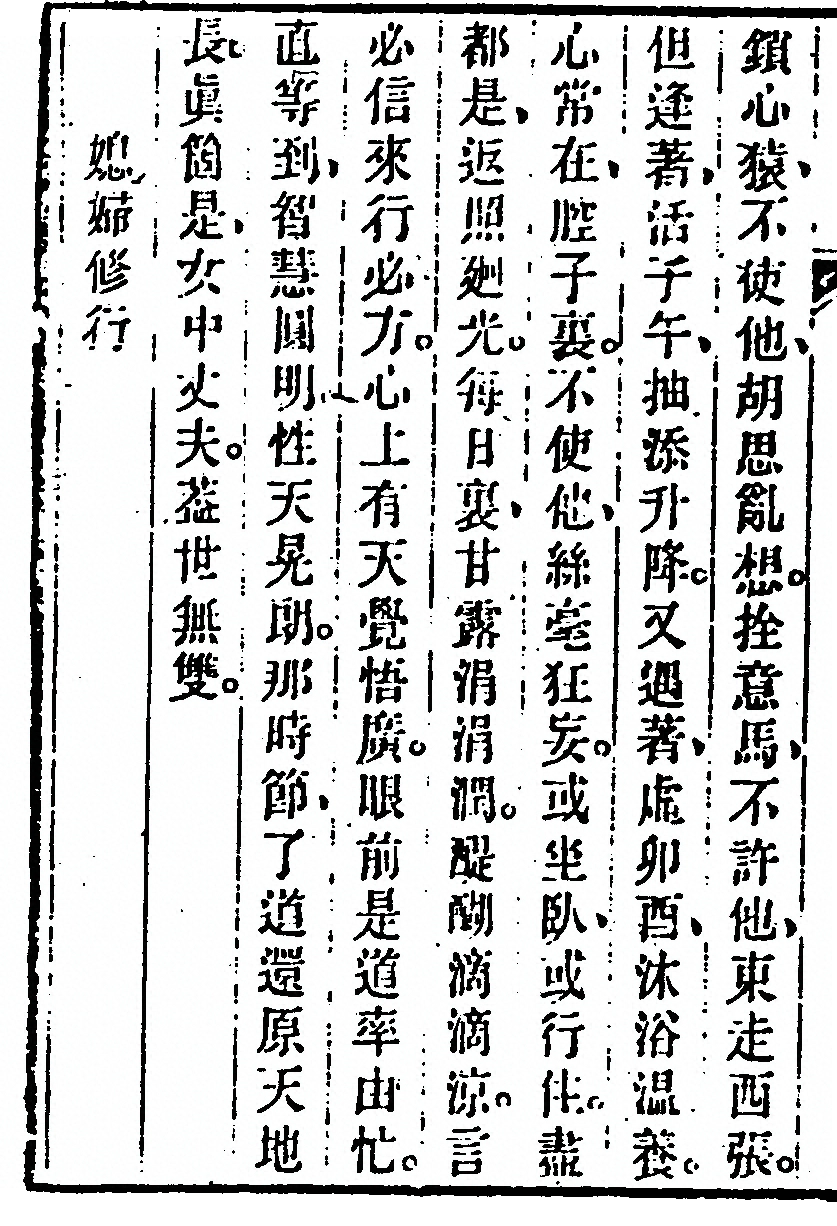 鎖心猿、不使他、胡思亂想。拴意馬、不許他、東走西張。
但逢著、活子午、抽添升降。又遇著、虛卯酉、沐浴温養。
心常在、腔子裏。不使他、絲毫狂妄。或坐臥、或行住。盡
都是、返照廻光。每日裏、甘露涓涓潤。醍醐滴滴涼。言
必信來行必方。心上有天覺悟廣。眼前是道率由忙。
直等到、智慧圓明、性天晃朗。那時節、了道還原天地
長。眞箇是、女中丈夫。葢世無雙。
媳婦修行